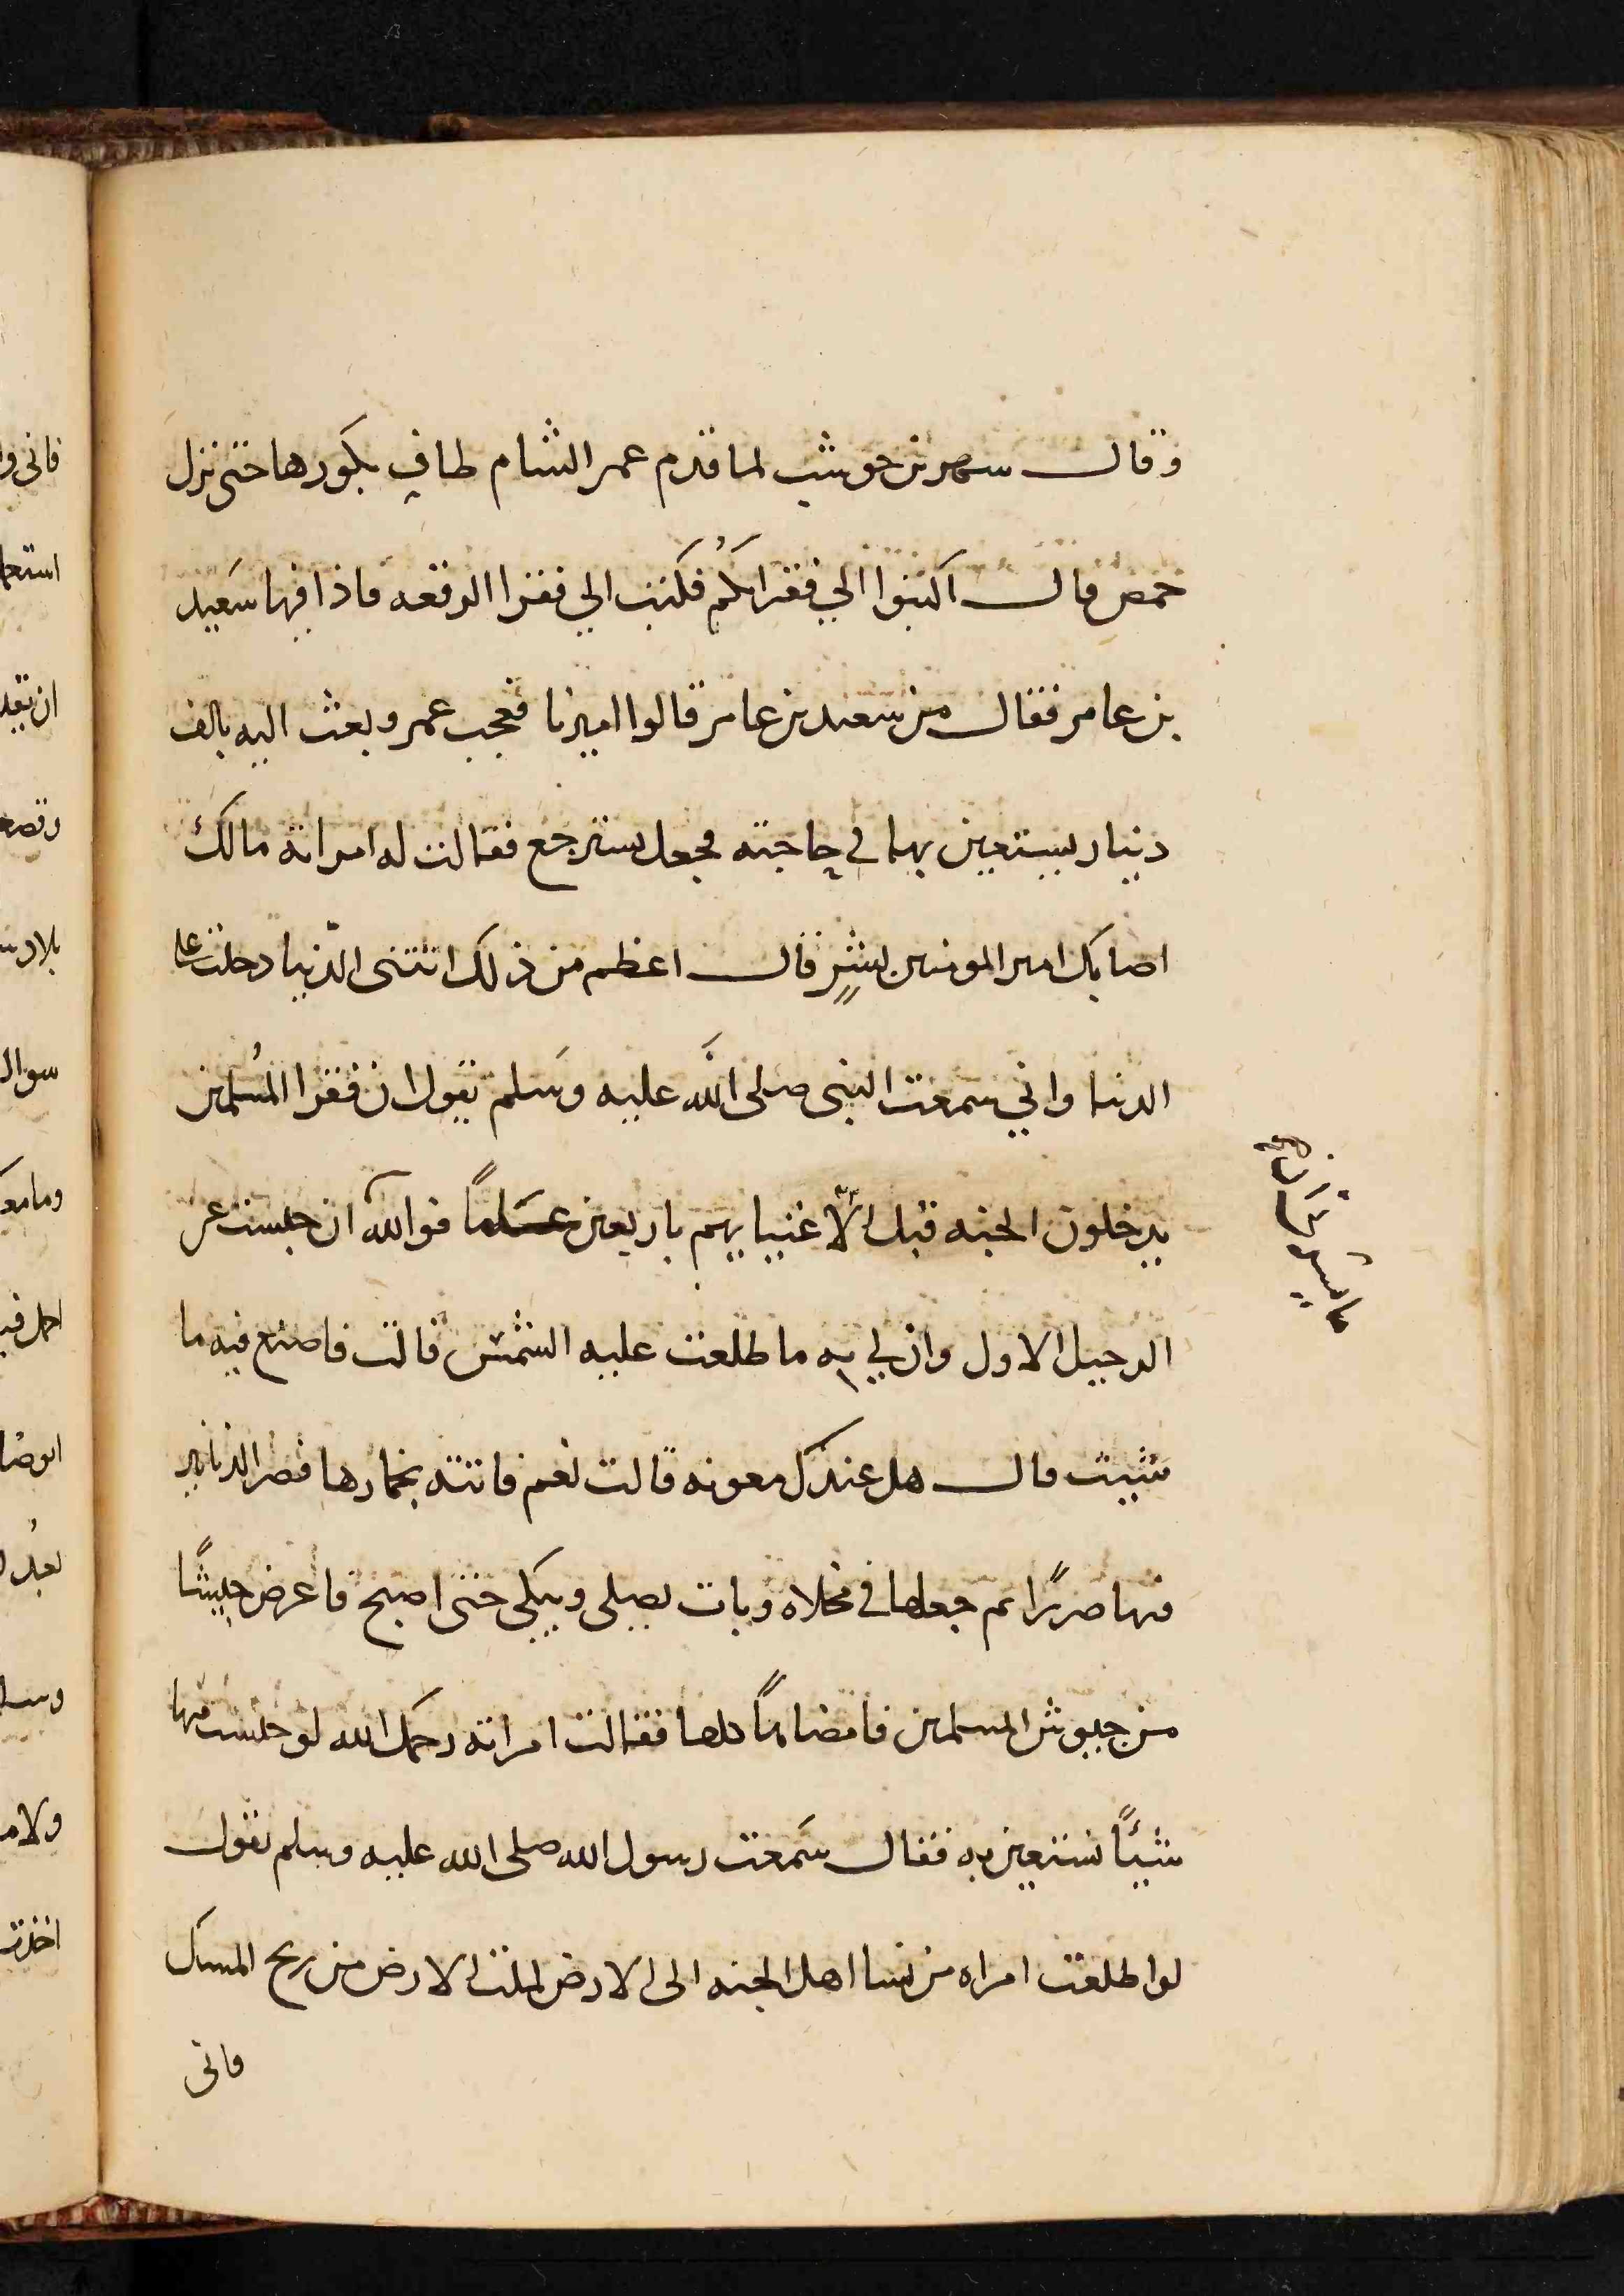 وقال شهر بن حوشب لما قدم عمر الشام طاف بكورها حتى نزل
حمص قال اكتبوا الي فقراكم فكتب الي فقرا الرقعه فاذا فيها سَعيد
بن عامر فقال من سعيد بن عامر قالوا اميرنا فعجب عمر وبعث اليه بالف
دينار يستعين بها في حاجته فجعل يسترجع فقالت له امراته مالك
اصابك امير المومنين بشيٍ قال اعظم من ذلك اتتنى الدّنيا دخلت علي
الدنيا واني سمعت النبى صلى الله عليه وسَلم يقول ان فقرا المُسلمين
يدخلون الجنه قبل الاغنيايهم باربعين عاماً فوالله ان حبست عن
الرحيل الاول وان لي به ما طلعت عليه الشمس قالت فاصنع فيه ما
شيت قال هل عندك معونه قالت نعم فاتته بخمارها فصر الدنانير
فيها صررًا ثم جعلها في مخلاه وبات يصلى ويبكى حتى اصبح فاعرض جيشًا
من جيوش المسلمين فامضاها كلها فقالت امراته رحمك الله لو حبست منها
شيًا نستعين به فقال سَمعت رسول الله صلى الله عليه وسلم يقول
لو اطلعت امراه من نسا اهل الجنه الى الارض لملت الارض من ريح المسك
فانى